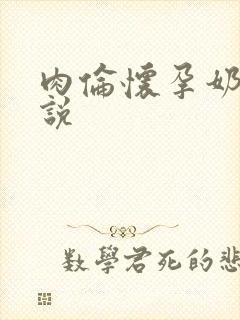 肉倫懷孕奶
說
数學君死的悲